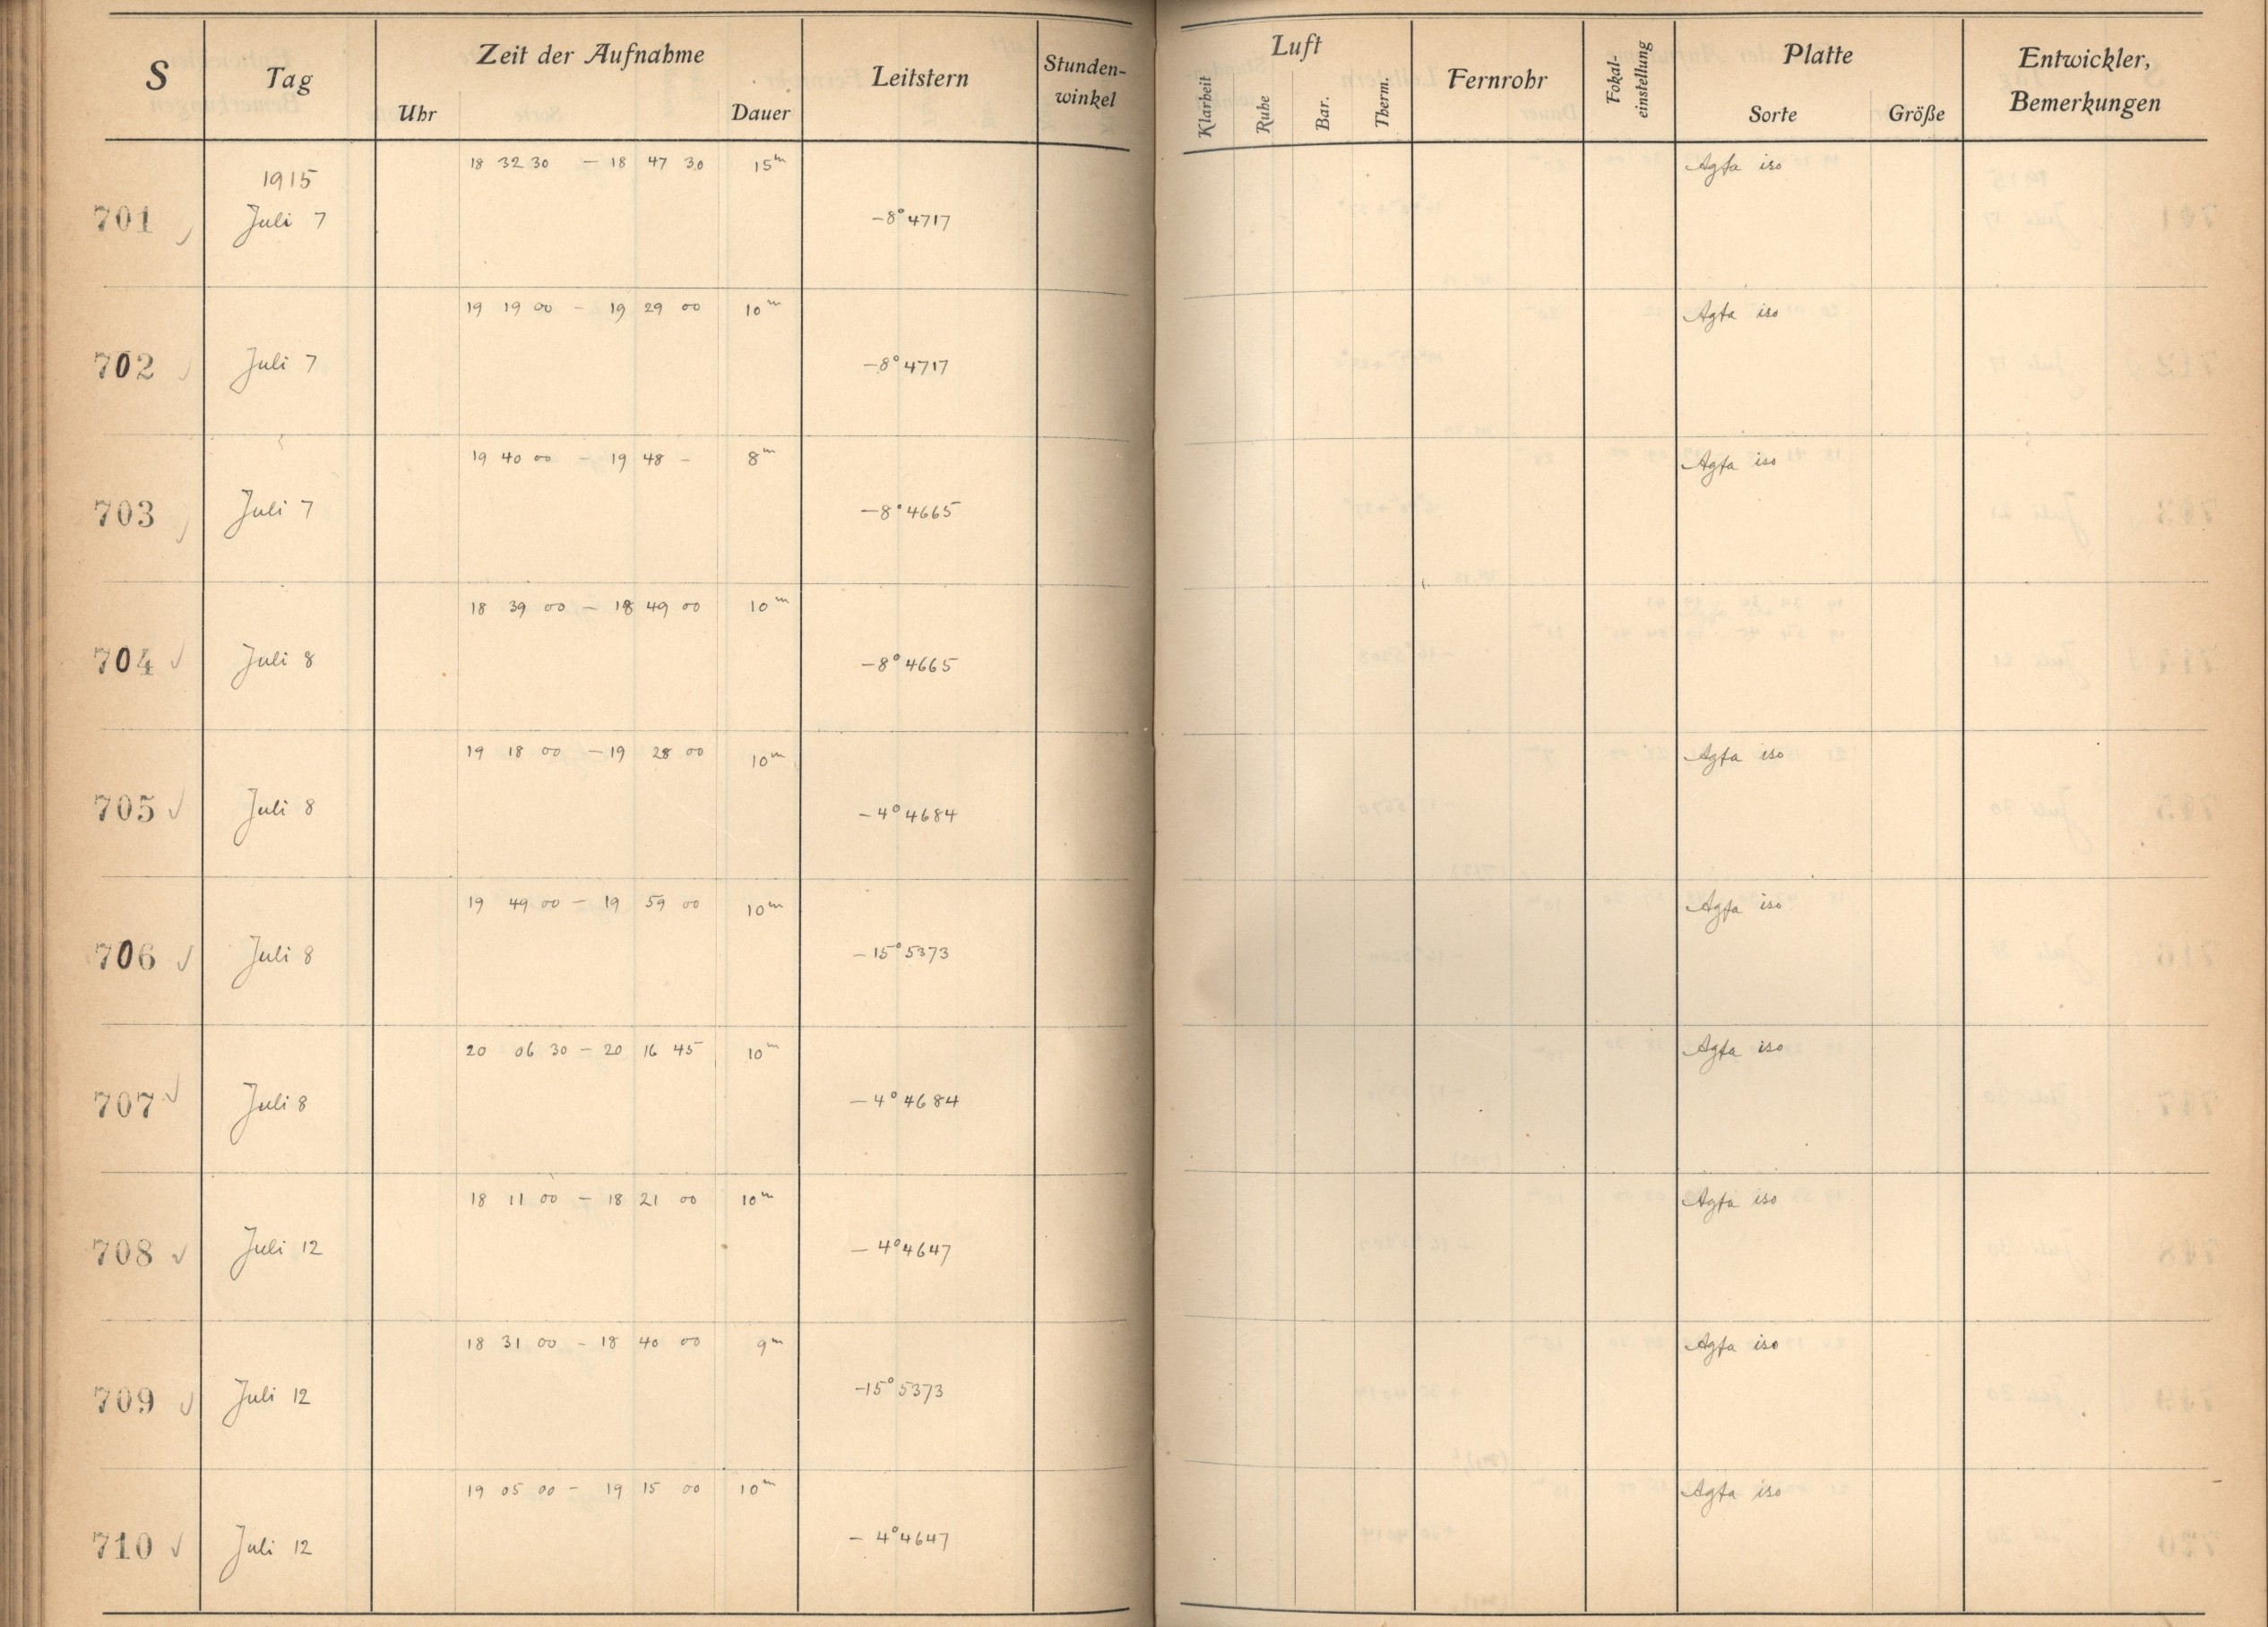 S Tag Zeit der Aufnahme Uhr Dauer Leitstern Stunden-winkel Luft Klarheit Ruhe Bar. Therm. Fernrohr Fokal-einstellung Platte Sorte Größe Entwickler, Bemerkungen
18 32 30 – 18 47 30 15m Agfa iso
1915
701 Juli 7 –8° 4717
19 19 00 – 19 29 00 10m Agfa iso
702 Juli 7 –8° 4717
19 40 00 – 19 48 – 8m Agfa iso
703 Juli 7 –8° 4665
18 39 00 – 18 49 00 10m
704 Juli 8 –8° 4665
19 18 00 – 19 28 00 10m Agfa iso
705 Juli 8 –4° 4684
19 49 00 – 19 59 00 10m Agfa iso
706 Juli 8 –15° 5373
20 06 30 – 20 16 45 10m Agfa iso
707 Juli 8 –4° 4684
18 11 00 – 18 21 00 10m Agfa iso
708 Juli 12 –4° 4647
18 31 00 – 18 40 00 9m Agfa iso
709 Juli 12 –15° 5373
19 05 00 – 19 15 00 10m Agfa iso
710 Juli 12 –4° 4647